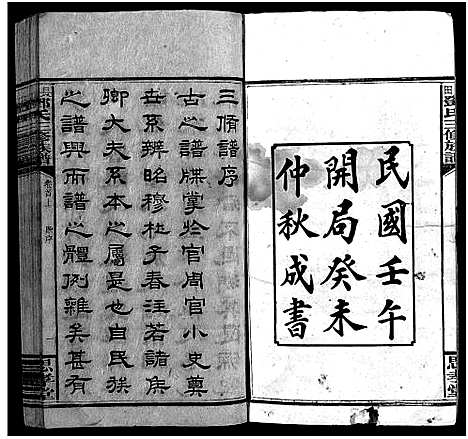 民國壬午
開局癸未
仲秋成書
鄧氏三修族譜
三脩譜序
古之譜牒掌於官周官小史奠
世系辨昭穆杜子春注若諸侯
卿大夫系本之屬是也自民族
之譜興而譜之體例雜矣甚有